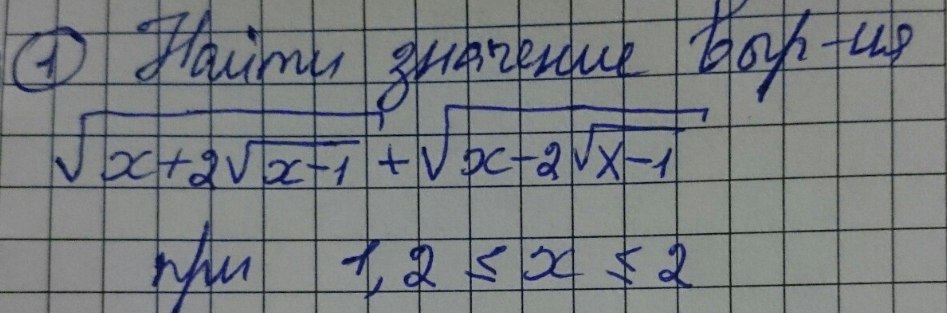 ① Найти значение выр-ия
√(x+2√(x-1)) + √(x-2√(x-1))
при 1,2 ≤ x ≤ 2